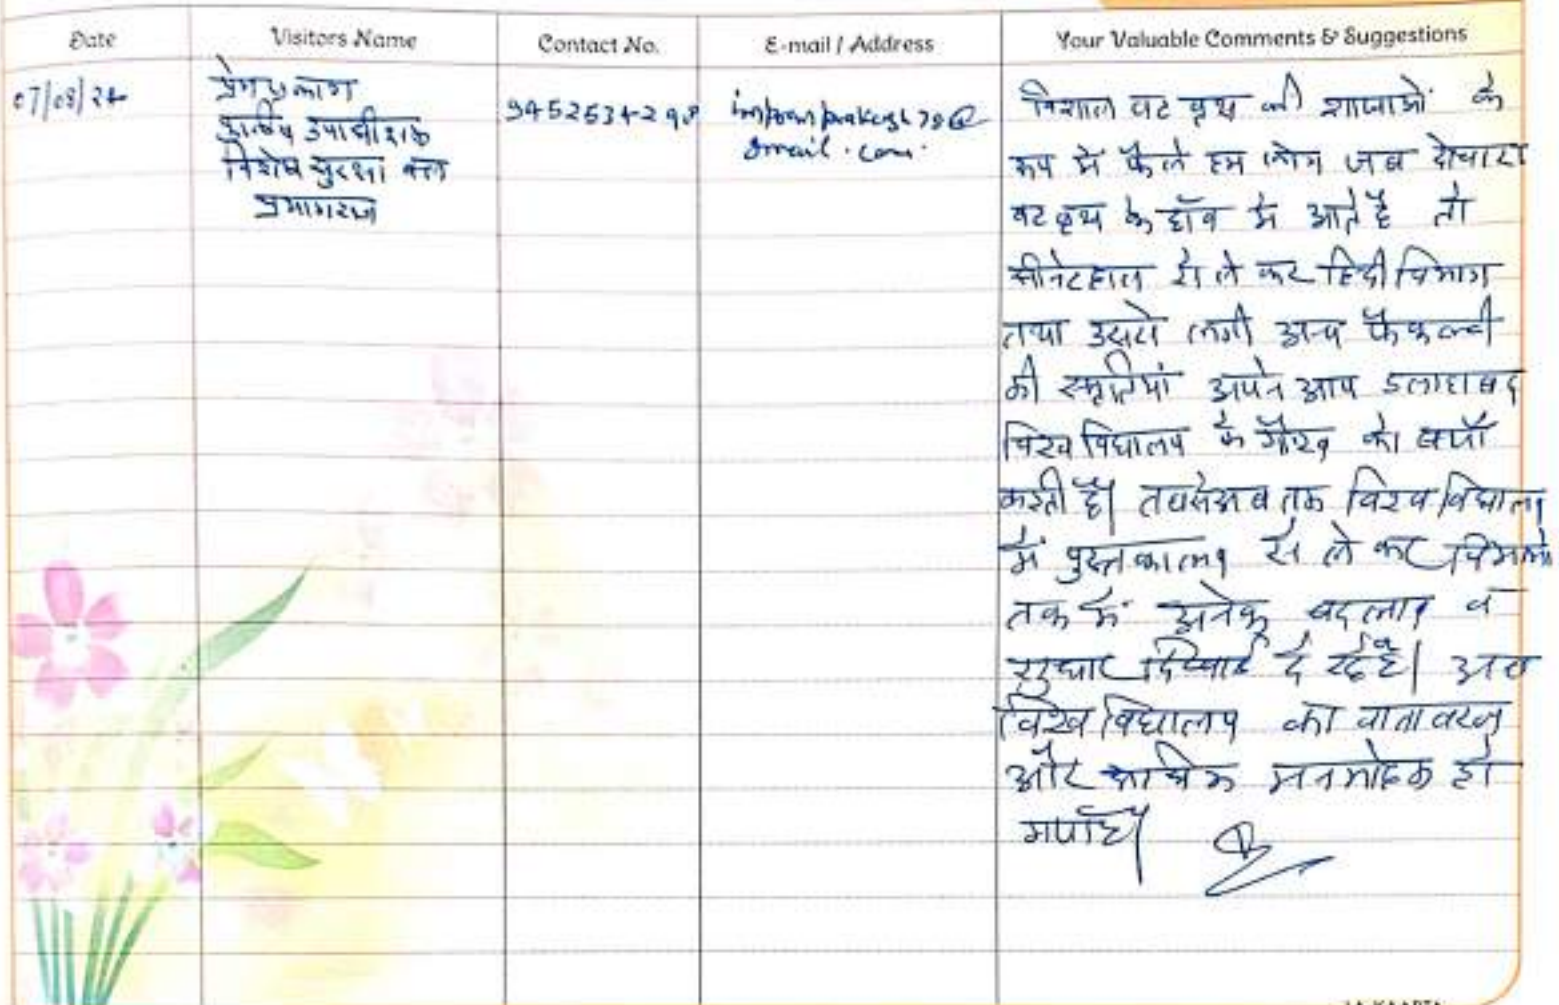 Date Visitors Name Contact No. E-mail / Address Your Valuable Comments & Suggestions
07/08/24
प्रेम प्रकाश
पुलिस उपाधीक्षक
विशेष सुरक्षा बल
प्रयागराज
gmail.com
विशाल वट वृक्ष की शाखाओं के
रूप में फैले हम लोग जब दोबारा
वट वृक्ष के छाँव में आते हैं तो
सीनेट हाल से ले कर हिंदी विभाग
तथा उससे लगी अन्य फैकल्टी
की स्मृतियां अपने आप इलाहाबाद
विश्वविद्यालय के गौरव को बयाँ
करती हैं। तब से अब तक विश्वविद्यालय
में पुस्तकालय से ले कर विभागों
तक में अनेक बदलाव व
सुधार दिखाई दे रहे हैं। अब
विश्वविद्यालय का वातावरण
और अधिक मनमोहक हो
गया है।